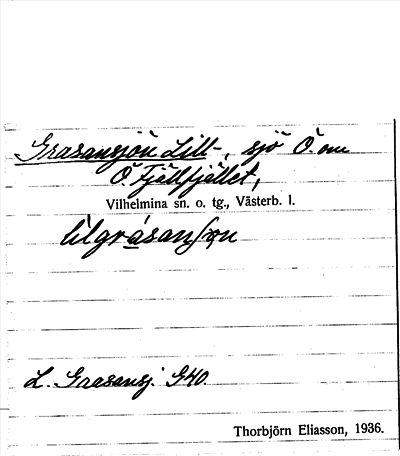 Grasansjön Lill-, sjö Ö. om
Ö. Fjällfjället,
Vilhelmina sn. o. tg., Västerb. l.
lilgråsanʃɷn
L. Graasansj. G40.
Thorbjörn Eliasson, 1936.